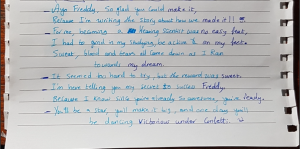 Ayo Freddy, So glad you could make it,
Because I'm writing the story about how we made it!!
For me, becoming a Scientist was no easy feat,
I had to good in my studying, be active & on my feet.
Sweat, blood and tears all came down as I Ran
towards my dream.
It seemed too hard to try, but the reward was sweet.
I'm here telling you my secret to success Freddy,
Because I know you're already So awesome, you're Ready.
You'll be a star, you'll make it big, and one day you'll
be dancing Victorious under Confetti